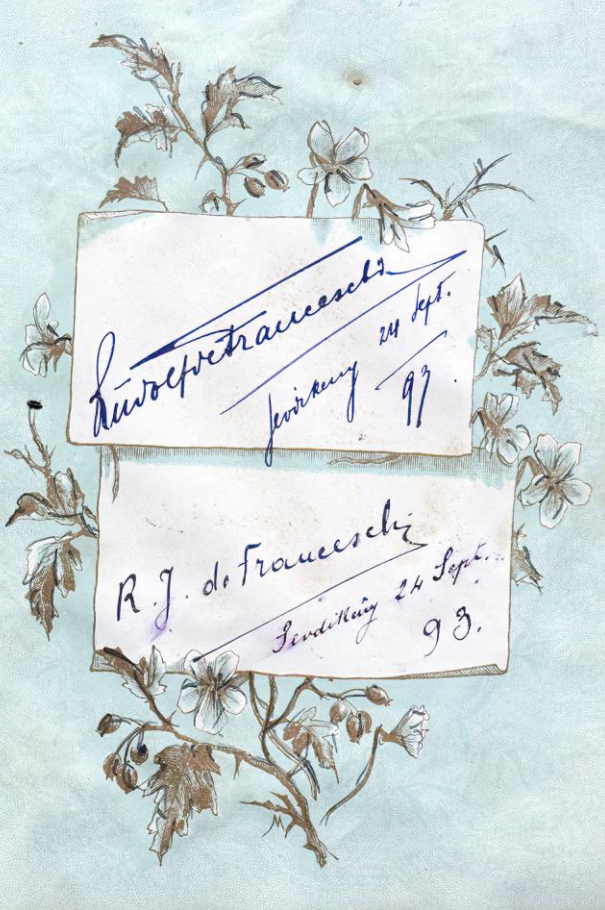 Rudolf de Franceschi
Sevdikeuy 24 Sept.
93.
R. J. de Franceschi
Sevdikeuy 24 Sept.
93.